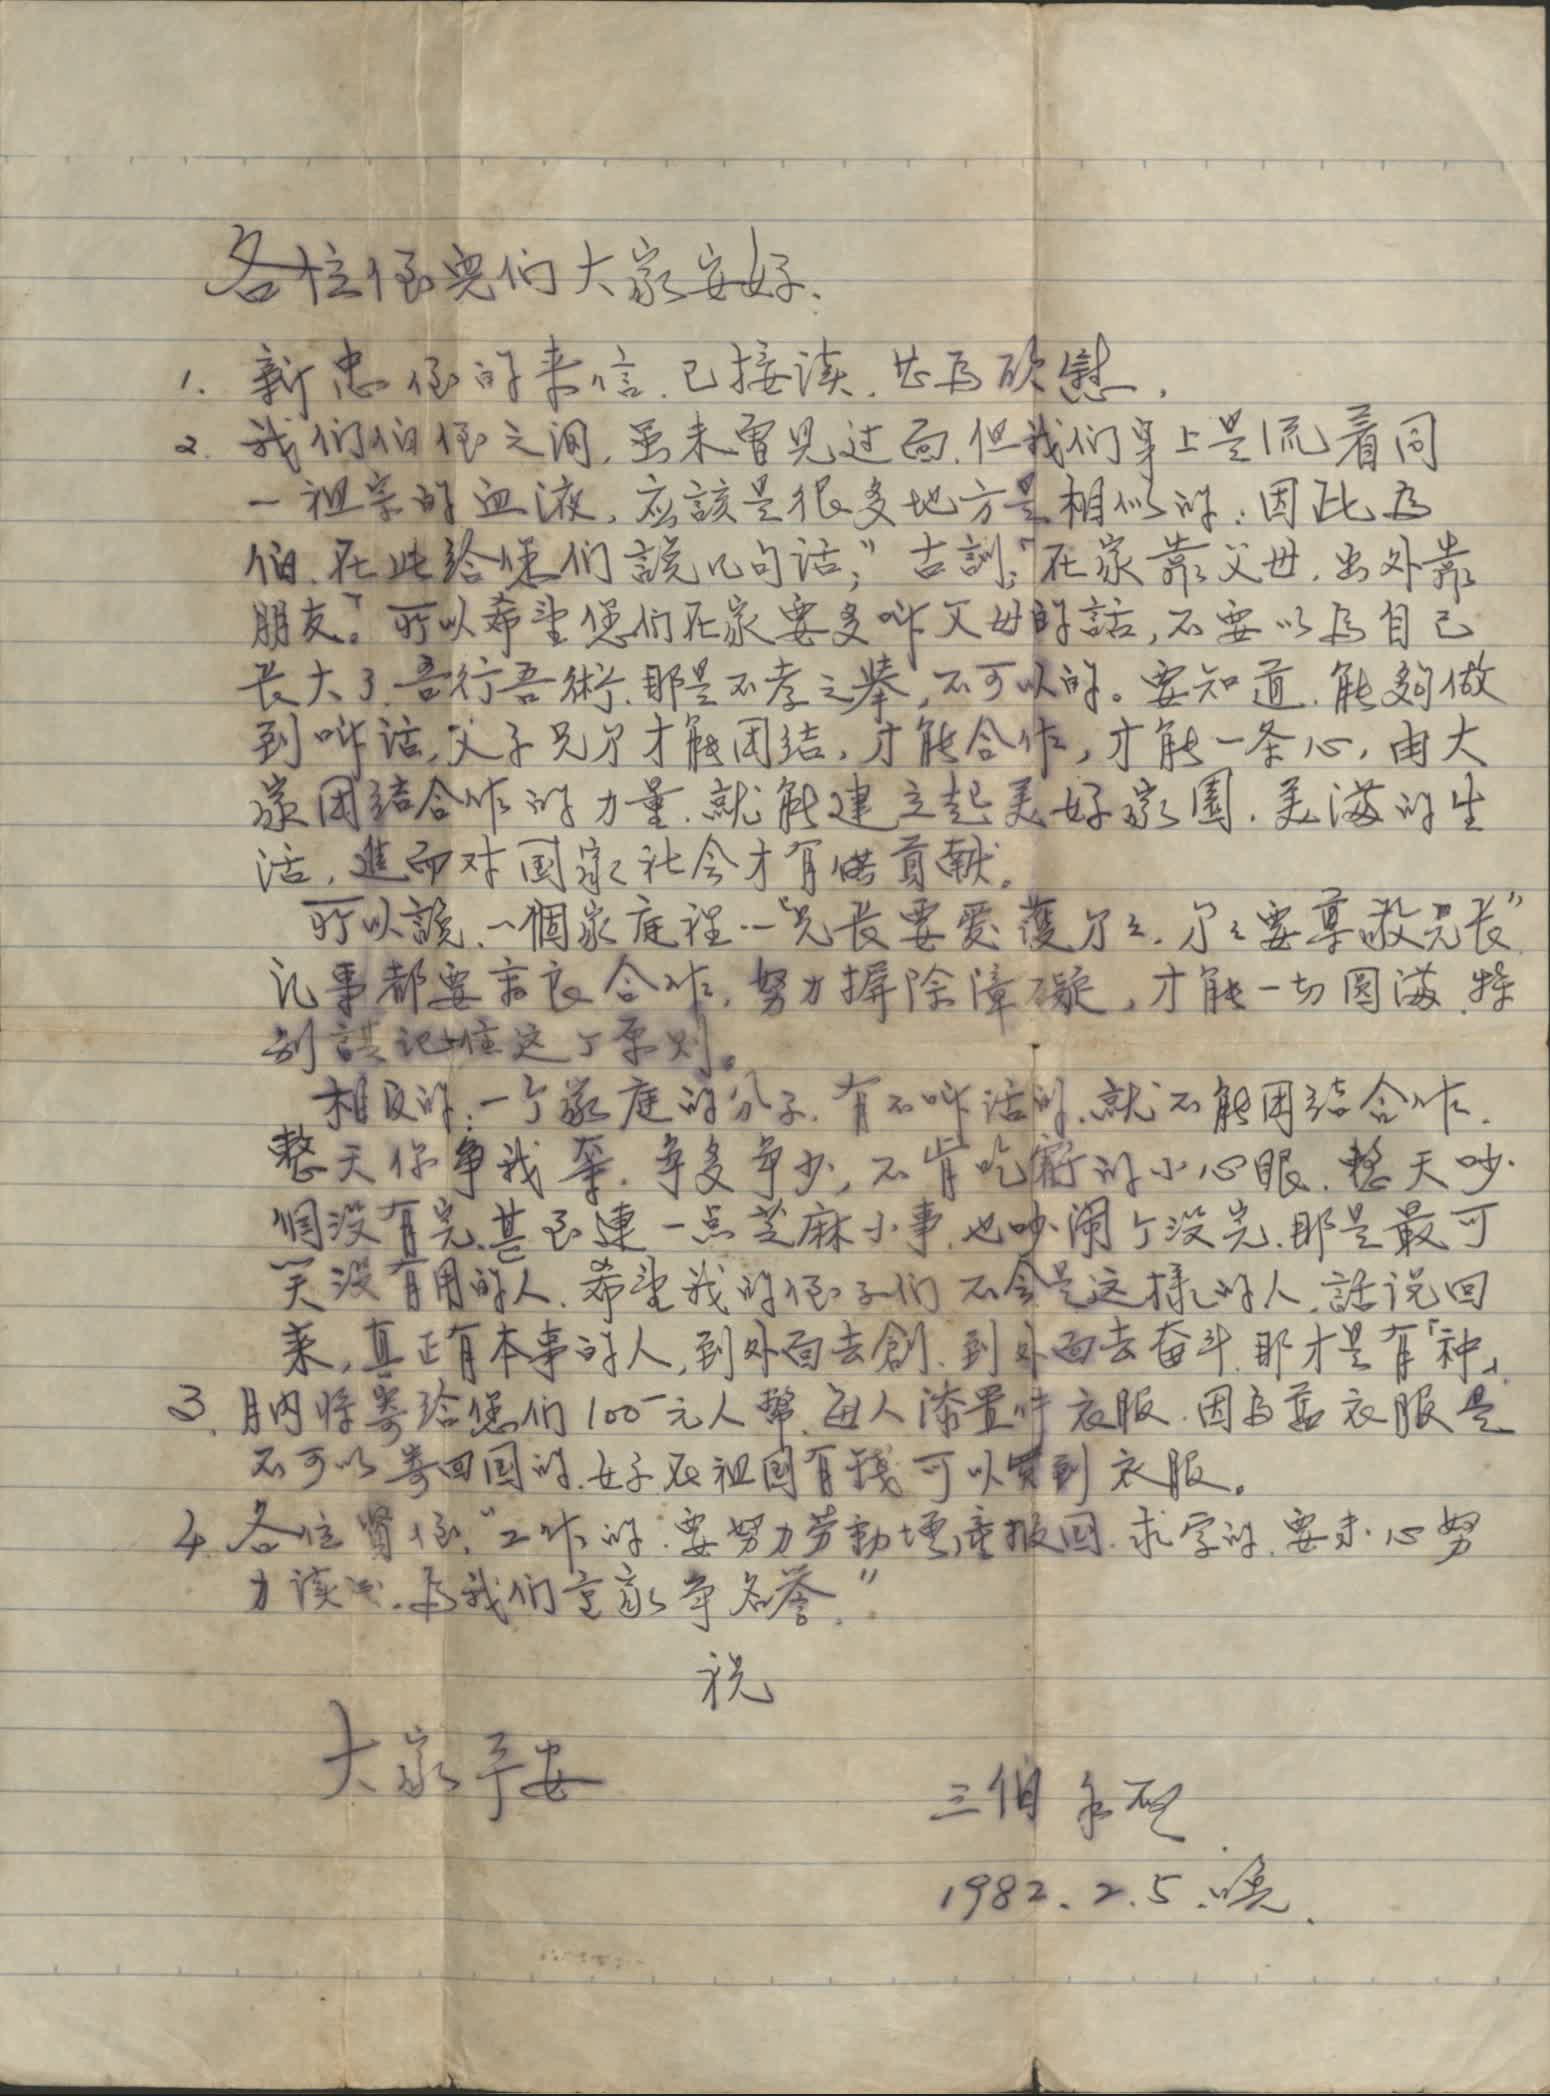 各位侄児们大家安好.
1. 新忠侄的来信.已接读.甚為欣慰.
2. 我们伯侄之间,虽未曾見过面.但我们身上是流着同
一祖宗的血液,应該是很多地方是相似的.因此為
伯.在此给您们說几句话;"古訓;「在家靠父母.出外靠
朋友」。所以希望您们在家要多听父母的話,不要以為自己
长大了.吾行吾術.那是不孝之举,不可以的。要知道.能夠做
到听话,父子兄弟才能团结,才能合作,才能一条心,由大
家团结合作的力量.就能建立起美好家園.美滿的生
活,進而对国家社会才有偌貢献。
所以說.一個家庭裡--"兄长要爱護弟弟.弟弟要尊敬兄长"
凡事都要 良合作,努力摒除障礙,才能一切圆滿.特
别謹记住这个原则。
相反的:一个家庭的分子.有不听话的.就不能团结合作.
整天你争我奪.争多争少,不肯吃虧的小心眼.整天吵
個没有完.甚至連一点芝麻小事.也吵闹个没完.那是最可
笑没有用的人.希望我的侄子们不会是这樣的人.話说回
来,真正有本事的人,到外面去創.到外面去奋斗.那才是有「种」
3. 月内将寄给您们100元人幣.每人添置件衣服.因為舊衣服是
不可以寄回国的.好在祖国有錢可以買到衣服。
4. 各位贤侄,"工作的.要努力劳動 報国.求学的.要 心努
力读书.為我们 家争名誉."
祝
大家平安
三伯
1982.2.5.晚.